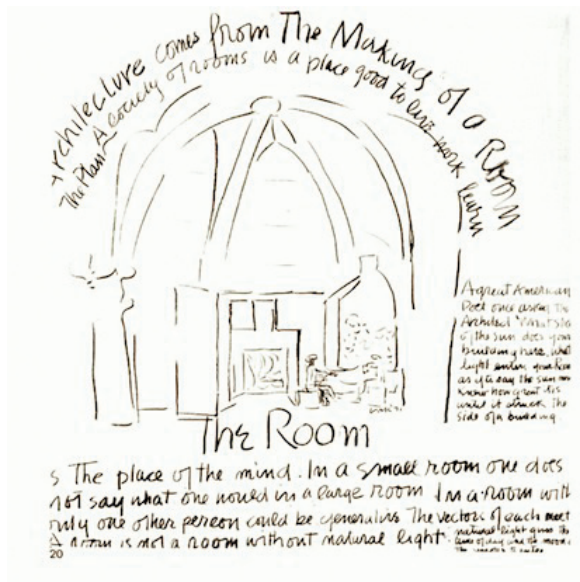 Architecture comes from The Making of a Room
The Plan A society of rooms is a place good to live work learn
A great American
Poet once asked the
Architect What slice
of the sun does your
building have, what
light enters your Room
as if to say the sun never
knew how great it is
until it struck the
side of a building.
The Room
s The place of the mind. In a small room one does
not say what one would in a large room In a room with
only one other person could be generative The vectors of each meet
A room is not a room without natural light natural light gives the
time of day and the mood
20